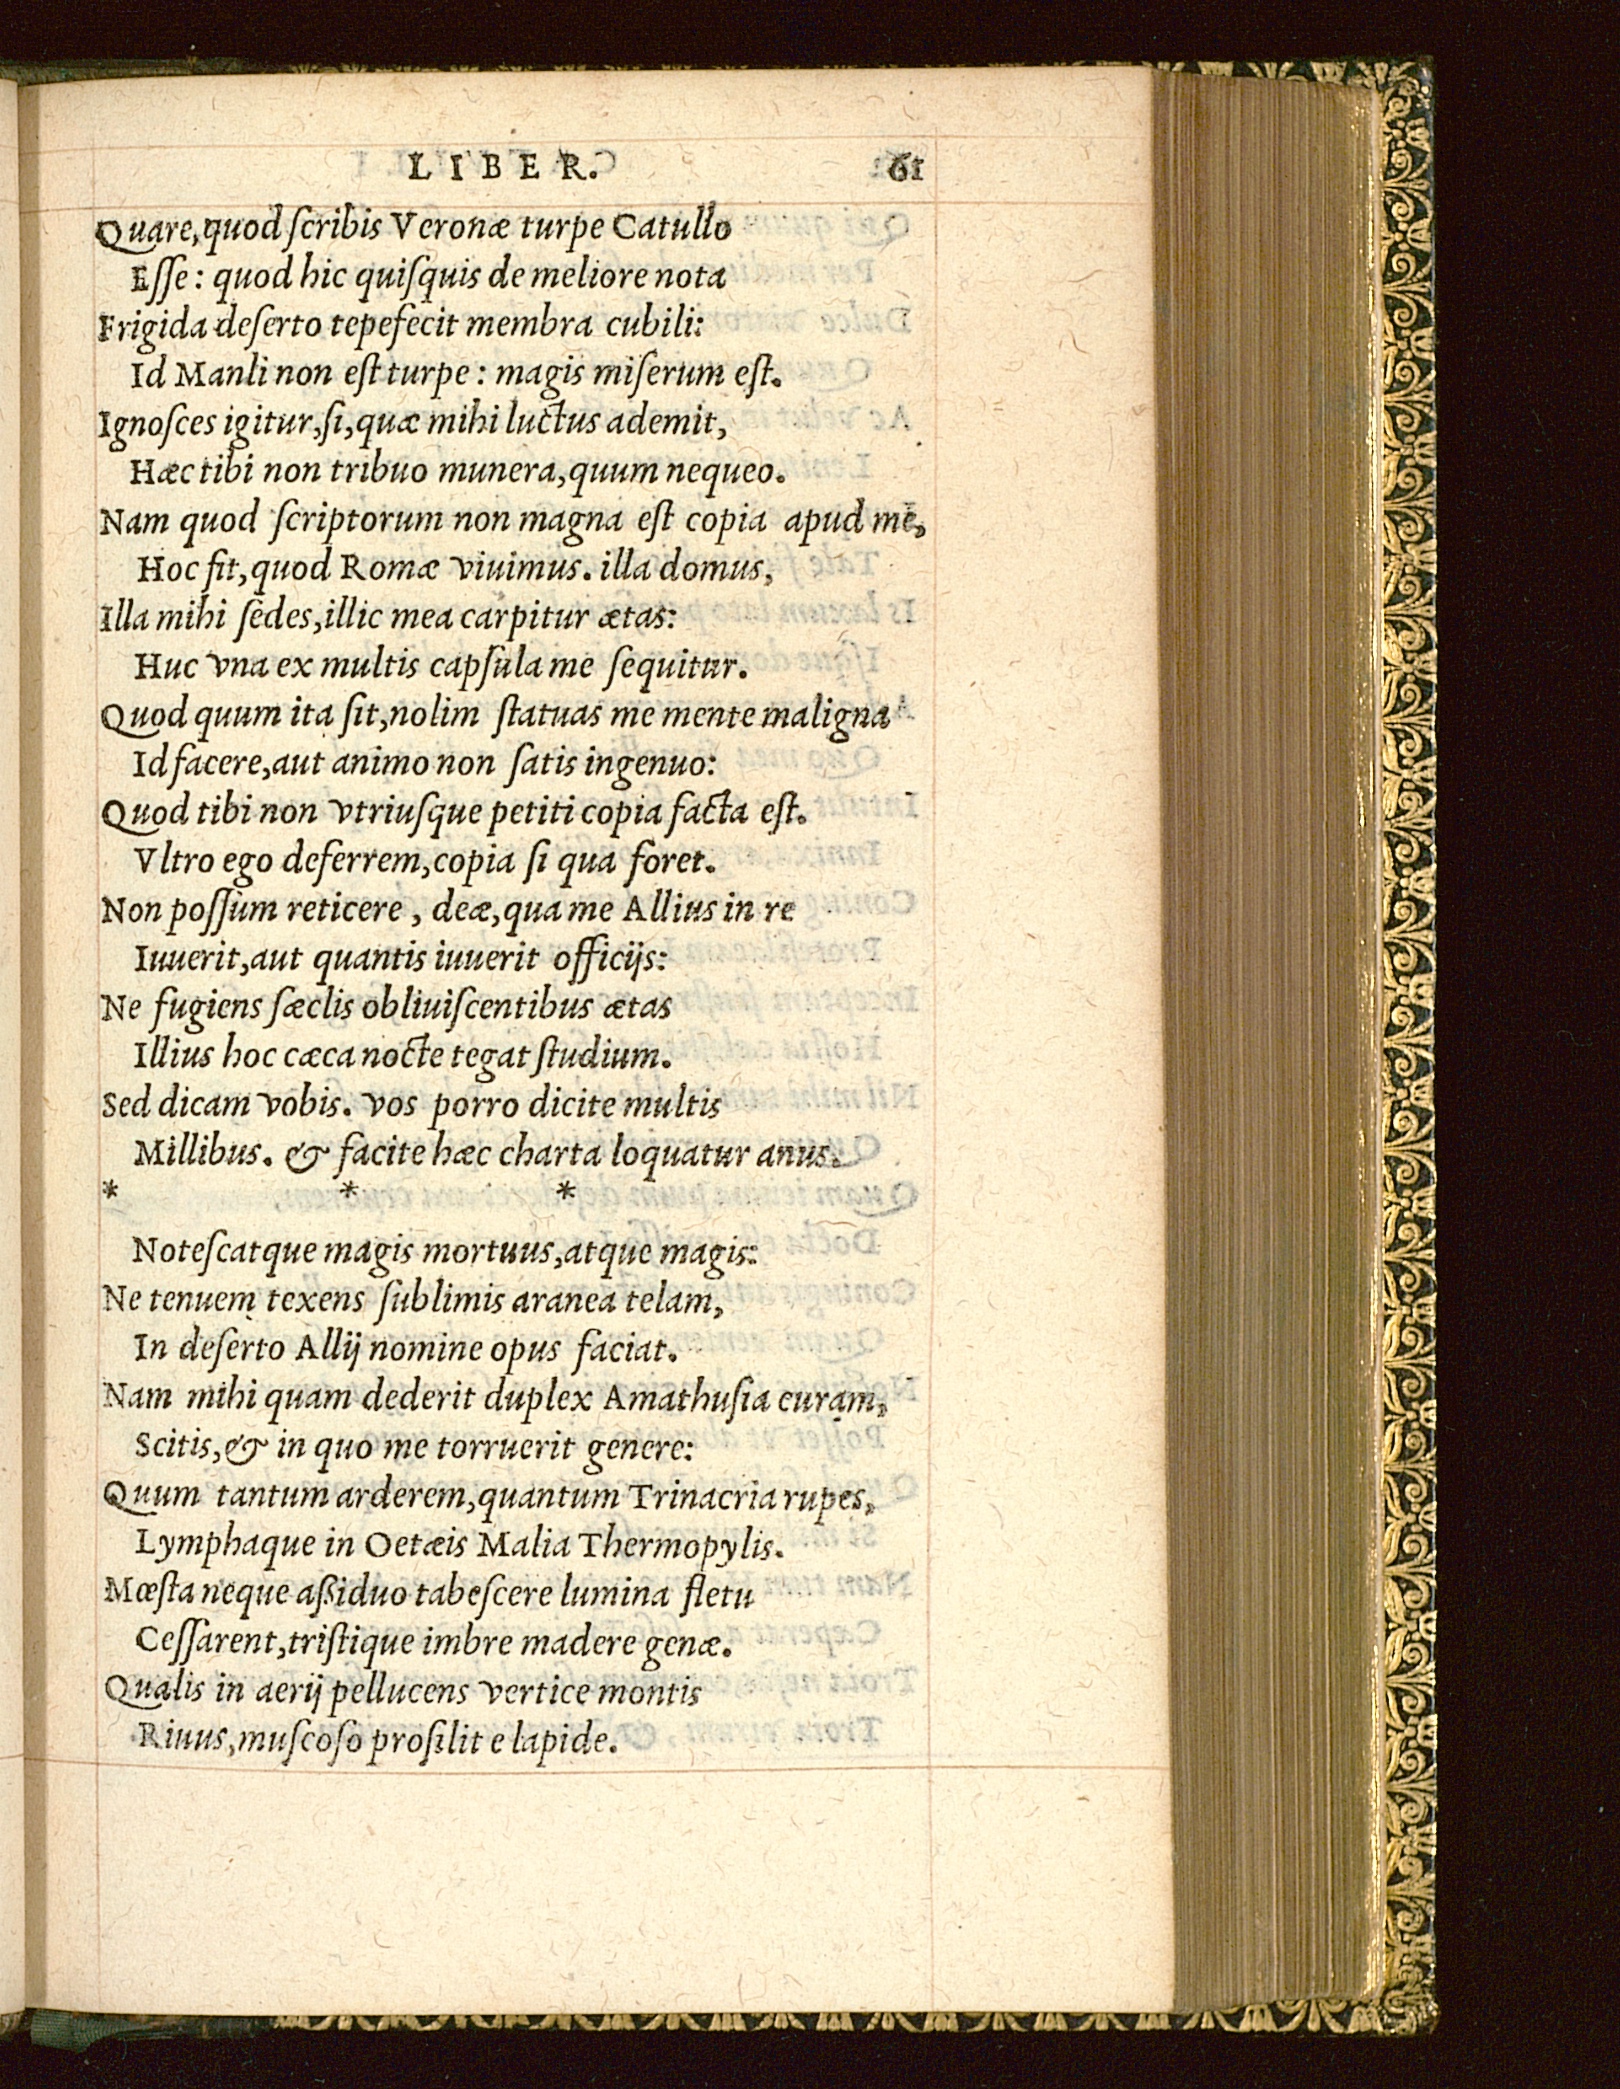 LIBER. 61
Quare, quod ſcribis Veronæ turpe Catullo
Eſſe: quod hic quiſquis de meliore nota
Frigida deſerto tepefecit membra cubili:
Id Manli non eſt turpe: magis miſerum eſt.
Ignoſces igitur, ſi, quæ mihi luctus ademit,
Hæc tibi non tribuo munera, quum nequeo.
Nam quod ſcriptorum non magna eſt copia apud me,
Hoc fit, quod Romæ viuimus. illa domus,
Illa mihi ſedes, illic mea carpitur ætas:
Huc vna ex multis capſula me ſequitur.
Quod quum ita ſit, nolim ſtatuas me mente maligna
Id facere, aut animo non ſatis ingenuo:
Quod tibi non vtriuſque petiti copia facta eſt.
Vltro ego deferrem, copia ſi qua foret.
Non poſſum reticere, deæ, qua me Allius in re
Iuuerit, aut quantis iuuerit officijs:
Ne fugiens ſæclis obliuiſcentibus ætas
Illius hoc cæca nocte tegat ſtudium.
Sed dicam vobis. vos porro dicite multis
Millibus. & facite hæc charta loquatur anus.
* * *
Noteſcatque magis mortuus, atque magis:
Ne tenuem texens ſublimis aranea telam,
In deſerto Allij nomine opus faciat.
Nam mihi quam dederit duplex Amathuſia curam,
Scitis, & in quo me torruerit genere:
Quum tantum arderem, quantum Trinacria rupes,
Lymphaque in Oetæis Malia Thermopylis.
Mœſta neque aßiduo tabeſcere lumina fletu
Ceſſarent, triſtique imbre madere genæ.
Qualis in aerij pellucens vertice montis
Riuus, muſcoſo proſilit e lapide.